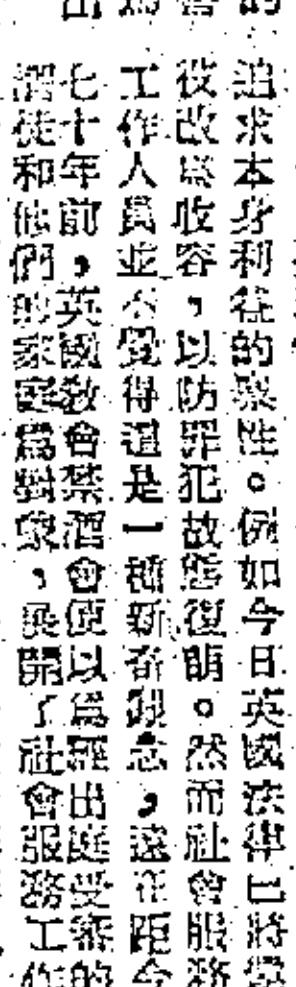 追求本身利益的性。例如今日英國法律已將
役改爲收容，以防罪犯故態復萌。然而社會服務
工作人員並不覺得這是一種新奇觀念，遠在距今
七十年前，英國教會禁酒會便以爲經出庭受審的
酒徒和他們的家庭爲對象，展開了社會服務工作